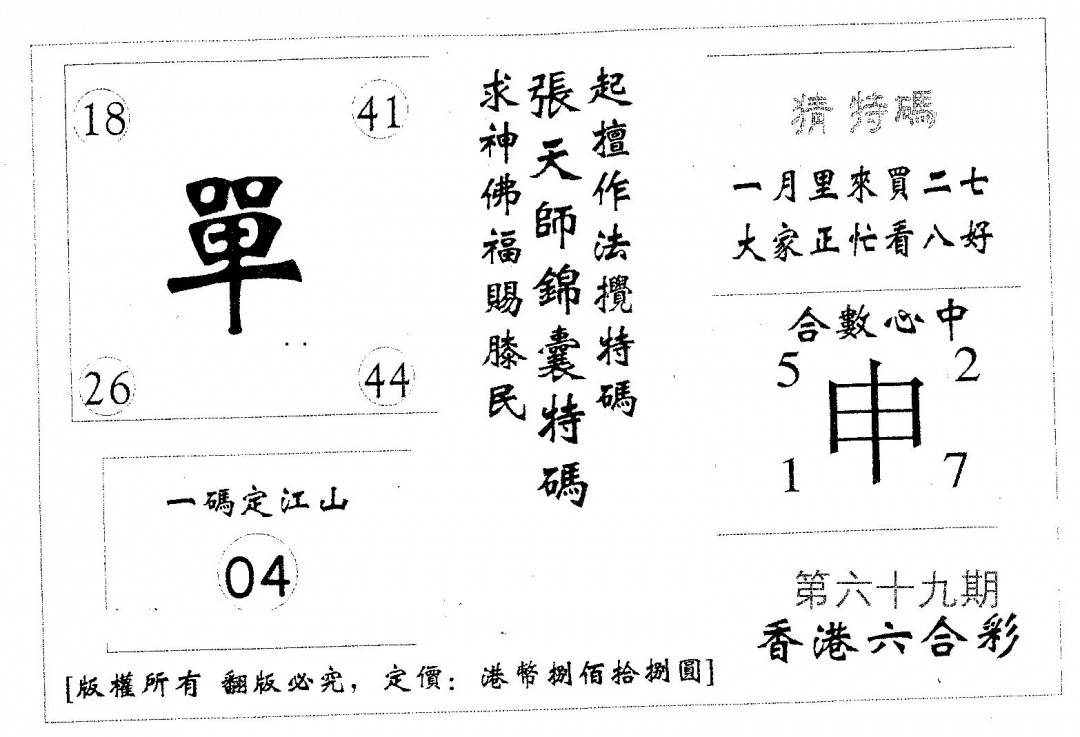 18
41
單
26
44
一碼定江山
04
起擅作法攪特碼
張天師錦囊特碼
求神佛福賜膝民
猜特碼
一月里來買二七
大家正忙看八好
合數心中
5
2
申
1
7
第六十九期
香港六合彩
[版權所有 翻版必究，定價：港幣捌佰拾捌圓]